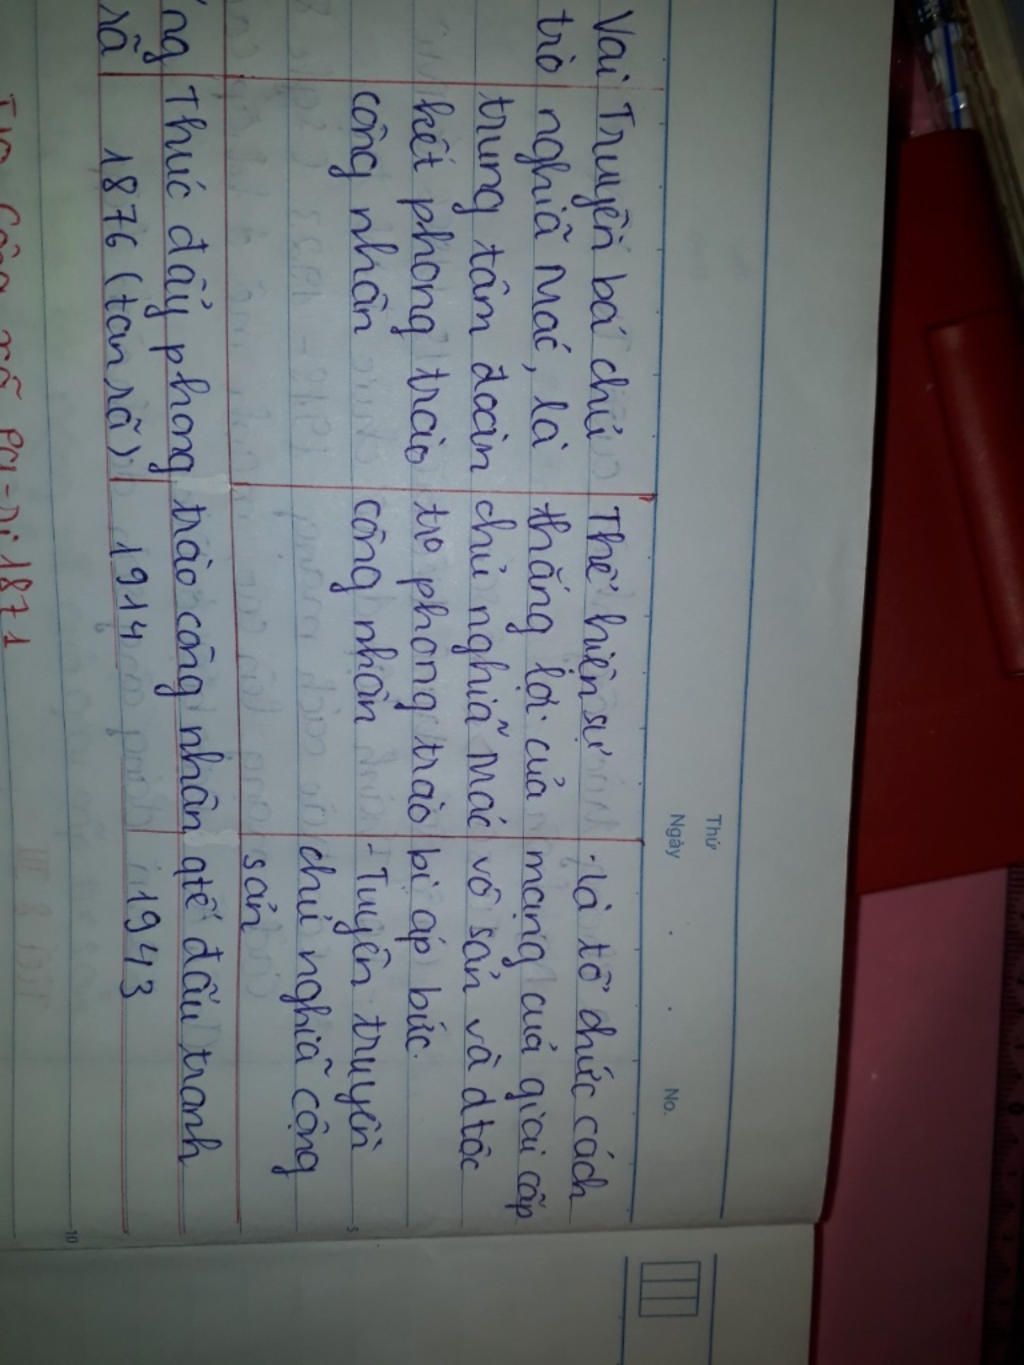 Thứ
Ngày No.
Vai Truyền bá chủ Thể hiện sự - Là tổ chức cách
trò nghĩa Mác, là thắng lợi của mạng của giai cấp
trung tâm đoàn chủ nghĩa Mác vô sản và dtộc
kết phong trào tro phong trào bị áp bức.
công nhân công nhân - Tuyên truyền
chủ nghĩa cộng
sản
ng Thúc đẩy phong trào công nhân qtế đấu tranh
rã 1876 (tan rã) 1914 1943
Công xã Pa-ri 1871
5
10